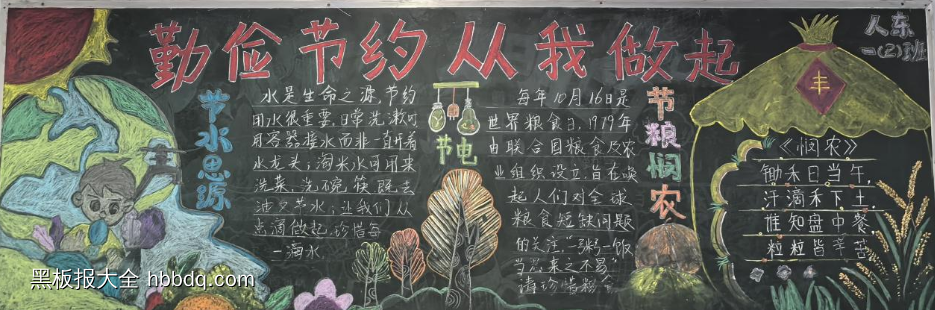 勤俭节约从我做起
人东
一(2)班
节水思源
水是生命之源,节约
用水很重要,日常洗漱时
用容器接水而非一直开着
水龙头;淘米水可用来
洗菜、洗碗筷,既去
油又节水;让我们从
点滴做起,珍惜每
一滴水
节电
每年10月16日是
世界粮食日,1979年
由联合国粮食及农
业组织设立,旨在唤
起人们对全球
粮食短缺问题
的关注,“一粥一饭
当思来之不易”
请珍惜粮食
节粮悯农
丰
《悯农》
锄禾日当午,
汗滴禾下土,
谁知盘中餐
粒粒皆辛苦
黑板报大全 hbbdq.com